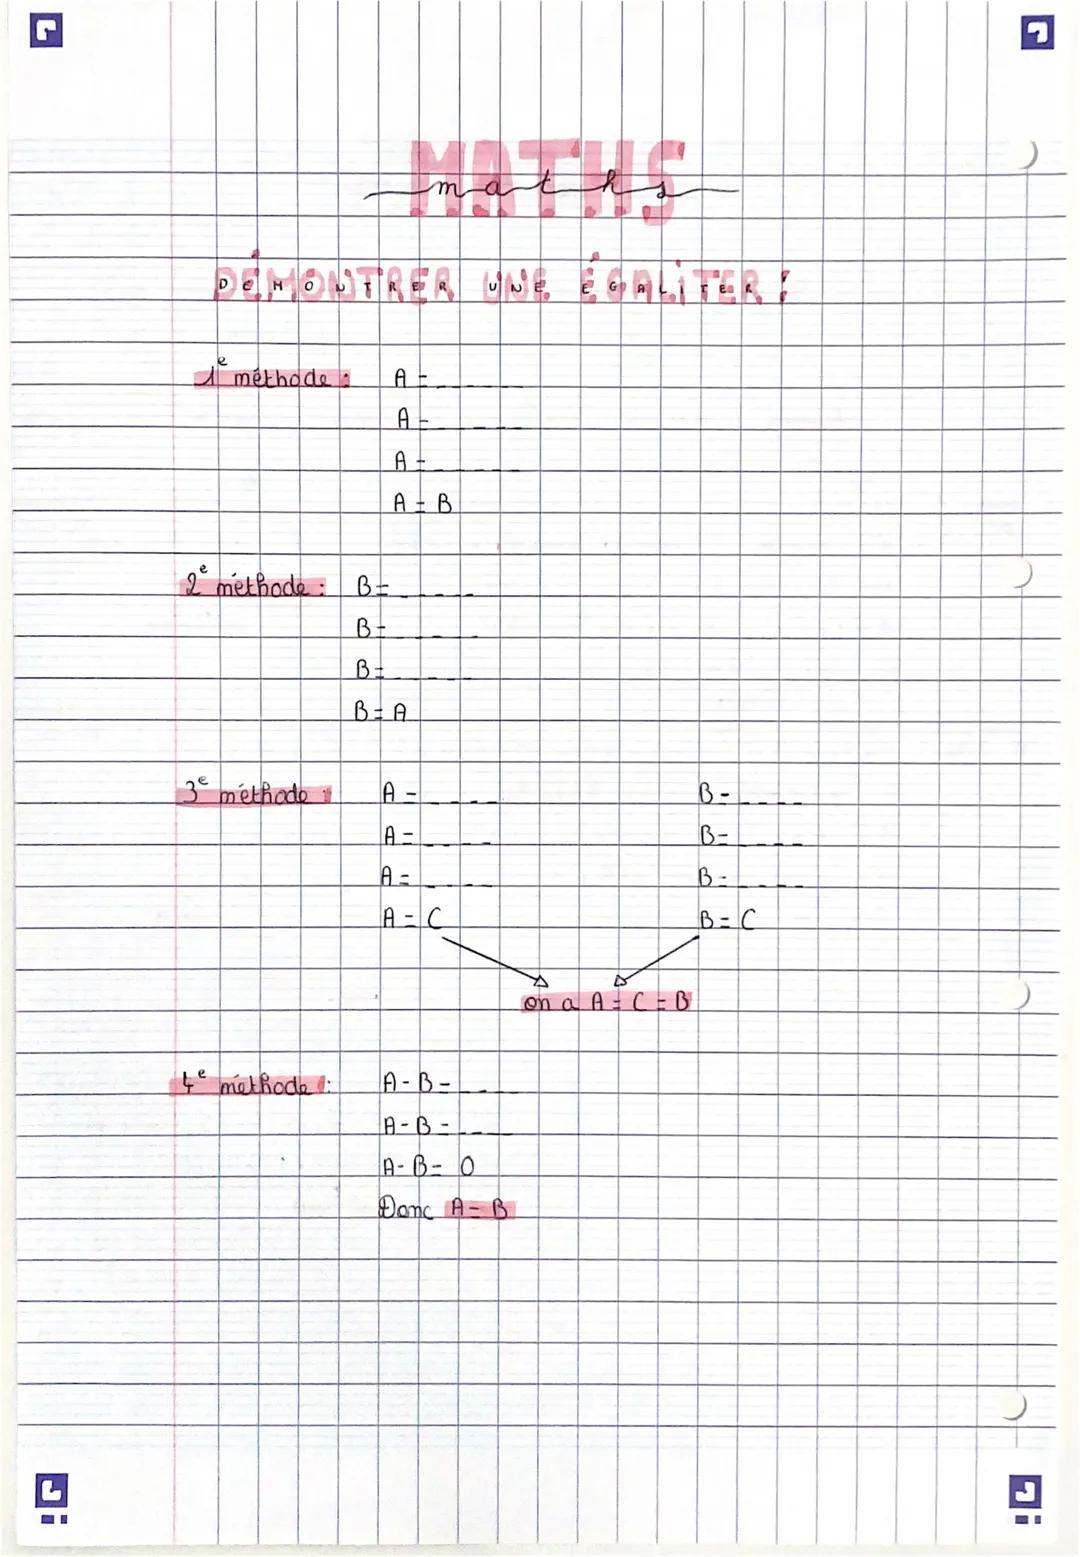 MATHS
maths
DÉMONTRER UNE ÉGALITER :
1e méthode : A = _ _ _ _
A = _ _ _ _
A = _ _ _ _
A = B
2e méthode : B = _ _ _ _
B = _ _ _ _
B = _ _ _ _
B = A
3e méthode : A = _ _ _ _ B = _ _ _ _
A = _ _ _ _ B = _ _ _ _
A = _ _ _ _ B = _ _ _ _
A = C B = C
on a A = C = B
4e méthode : A - B = _ _ _ _
A - B = _ _ _
A - B = 0
Donc A = B